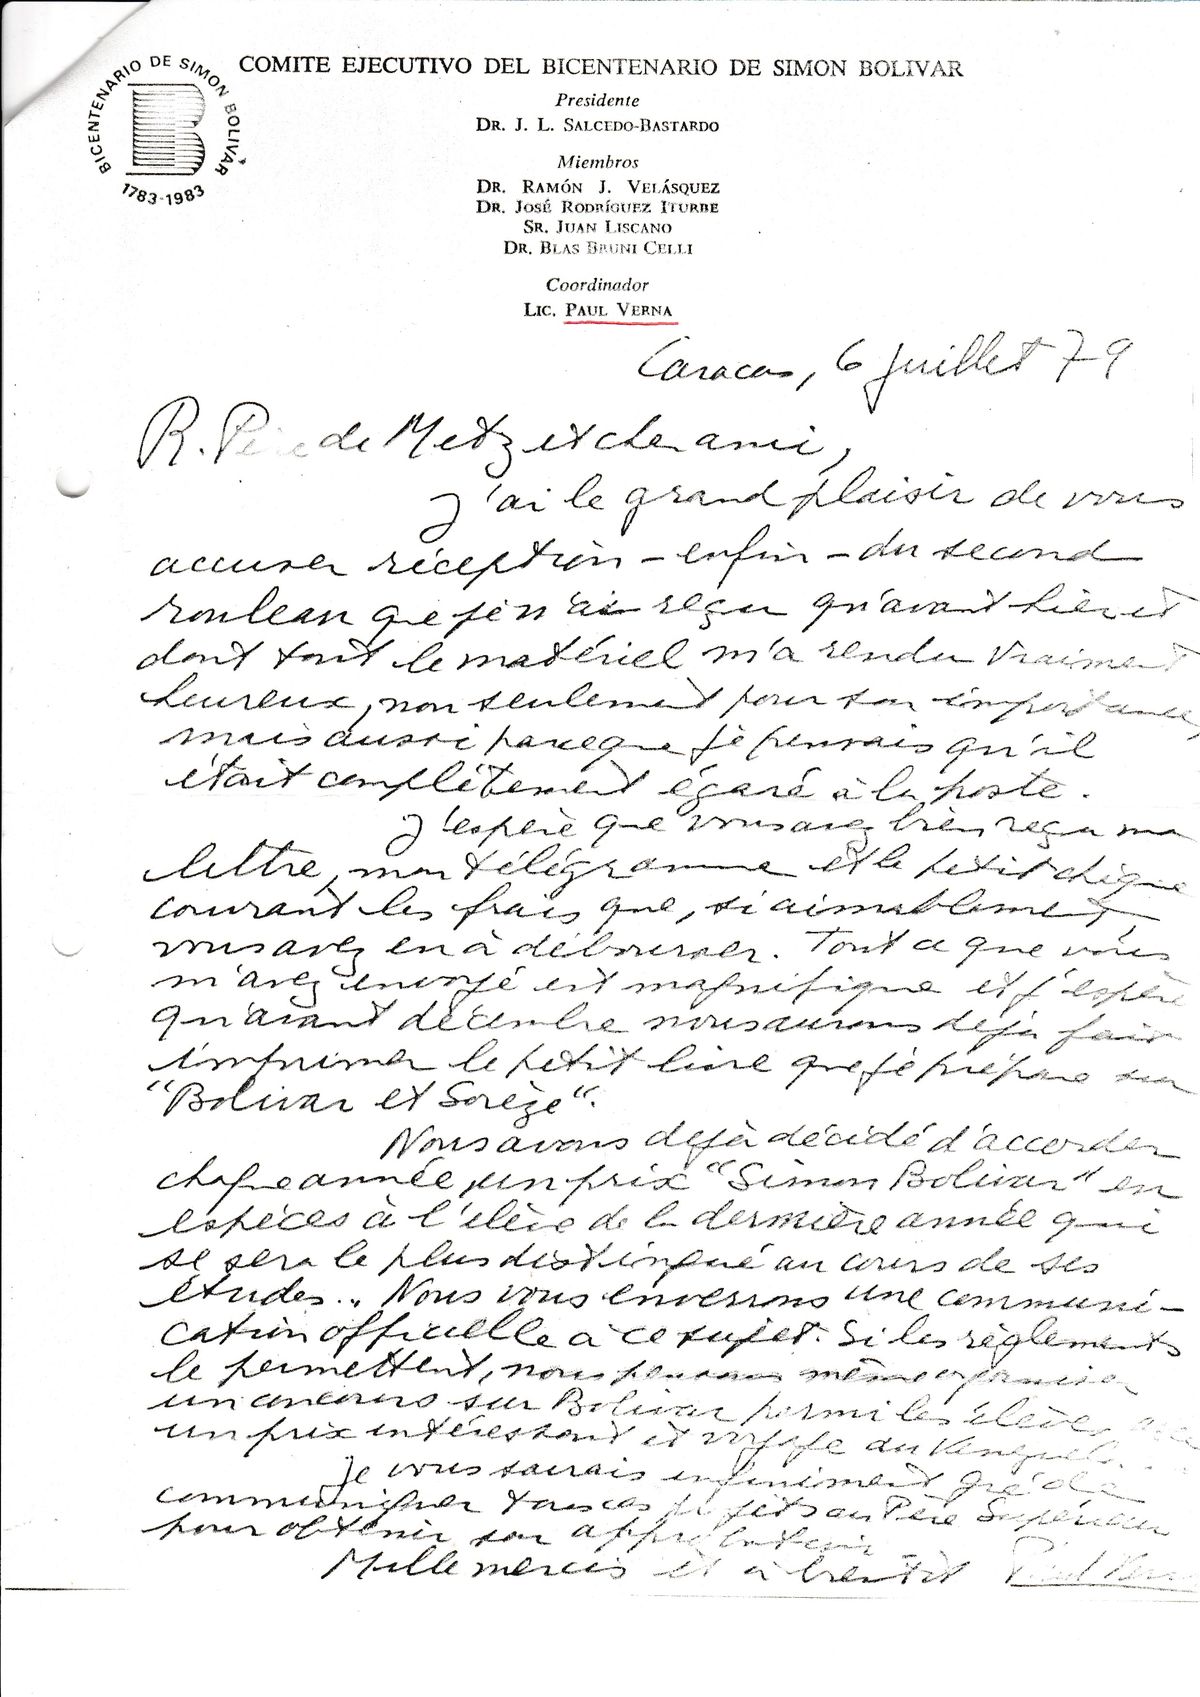 BICENTENARIO DE SIMON BOLIVAR
1783-1983
COMITE EJECUTIVO DEL BICENTENARIO DE SIMON BOLIVAR
Presidente
DR. J. L. SALCEDO-BASTARDO
Miembros
DR. RAMÓN J. VELÁSQUEZ
DR. JOSÉ RODRÍGUEZ ITURBE
SR. JUAN LISCANO
DR. BLAS BRUNI CELLI
Coordinador
LIC. PAUL VERNA
Caracas, 6 juillet 79
R. Père de Metz et cher ami,
J'ai le grand plaisir de vous
accuser réception - enfin - du second
rouleau que je n'ai reçu qu'avant hier et
dont tout le matériel m'a rendu vraiment
heureux, non seulement pour son importance,
mais aussi parce que je pensais qu'il
était complètement égaré à la poste.
J'espère que vous avez bien reçu ma
lettre, mon télégramme et le petit chèque
couvrant les frais que, si aimablement,
vous avez eu à débourser. Tout ce que vous
m'avez envoyé est magnifique et j'espère
qu'avant décembre nous aurons déjà fait
imprimer le petit livre que je prépare sur
"Bolivar et Sorèze".
Nous avons déjà décidé d'accorder
chaque année, un prix "Simon Bolivar" en
espèces à l'élève de la dernière année qui
se sera le plus distingué au cours de ses
études.. Nous vous enverrons une communi-
cation officielle à ce sujet. Si les règlements
le permettent, nous pensons même organiser
un concours sur Bolivar parmi les élèves, avec
un prix intéressant et voyage au Venezuela.
Je vous saurais infiniment gré de
communiquer tous ces projets au Père Supérieur
pour obtenir son approbation.
Mille mercis et à bientôt Paul Verna